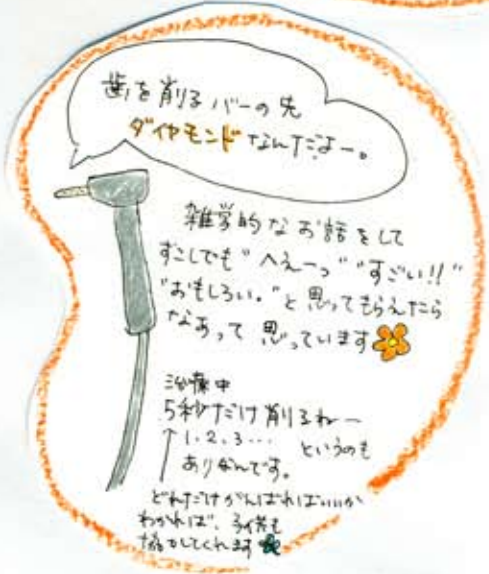 歯を削るバーの先
ダイヤモンドなんだよー。
雑学的なお話をして
すこしでも"へえーっ""すごい!!"
"おもしろい。"と思ってもらえたら
なあって思っています
治療中
5秒だけ削るねー
↑1.2.3… というのも
ありなんです。
どれだけがんばればいいか
わかれば、子供も
協力してくれます